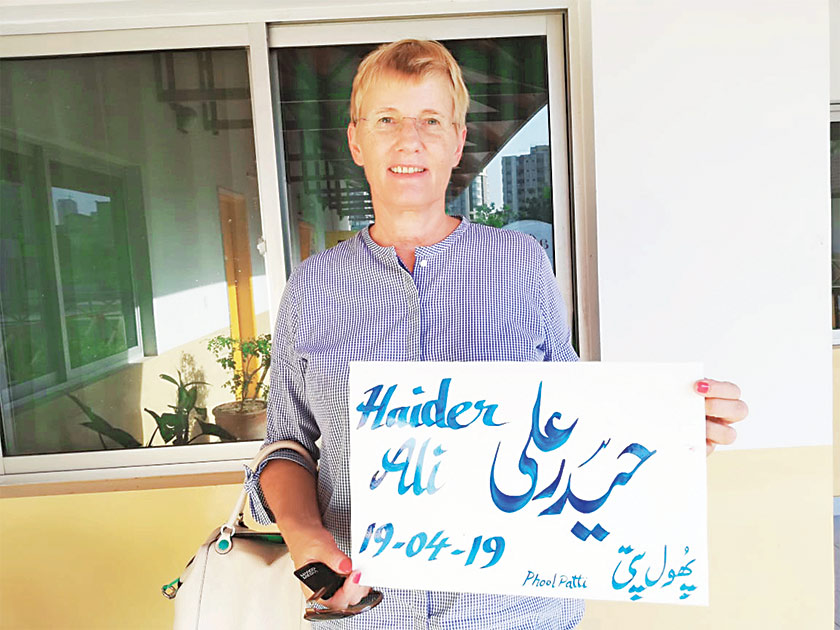 Haider
Ali
حیدر علی
19-04-19
Phool Patti
پُھول پتی